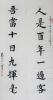 人是百年一過客
吾當十日九揮毫